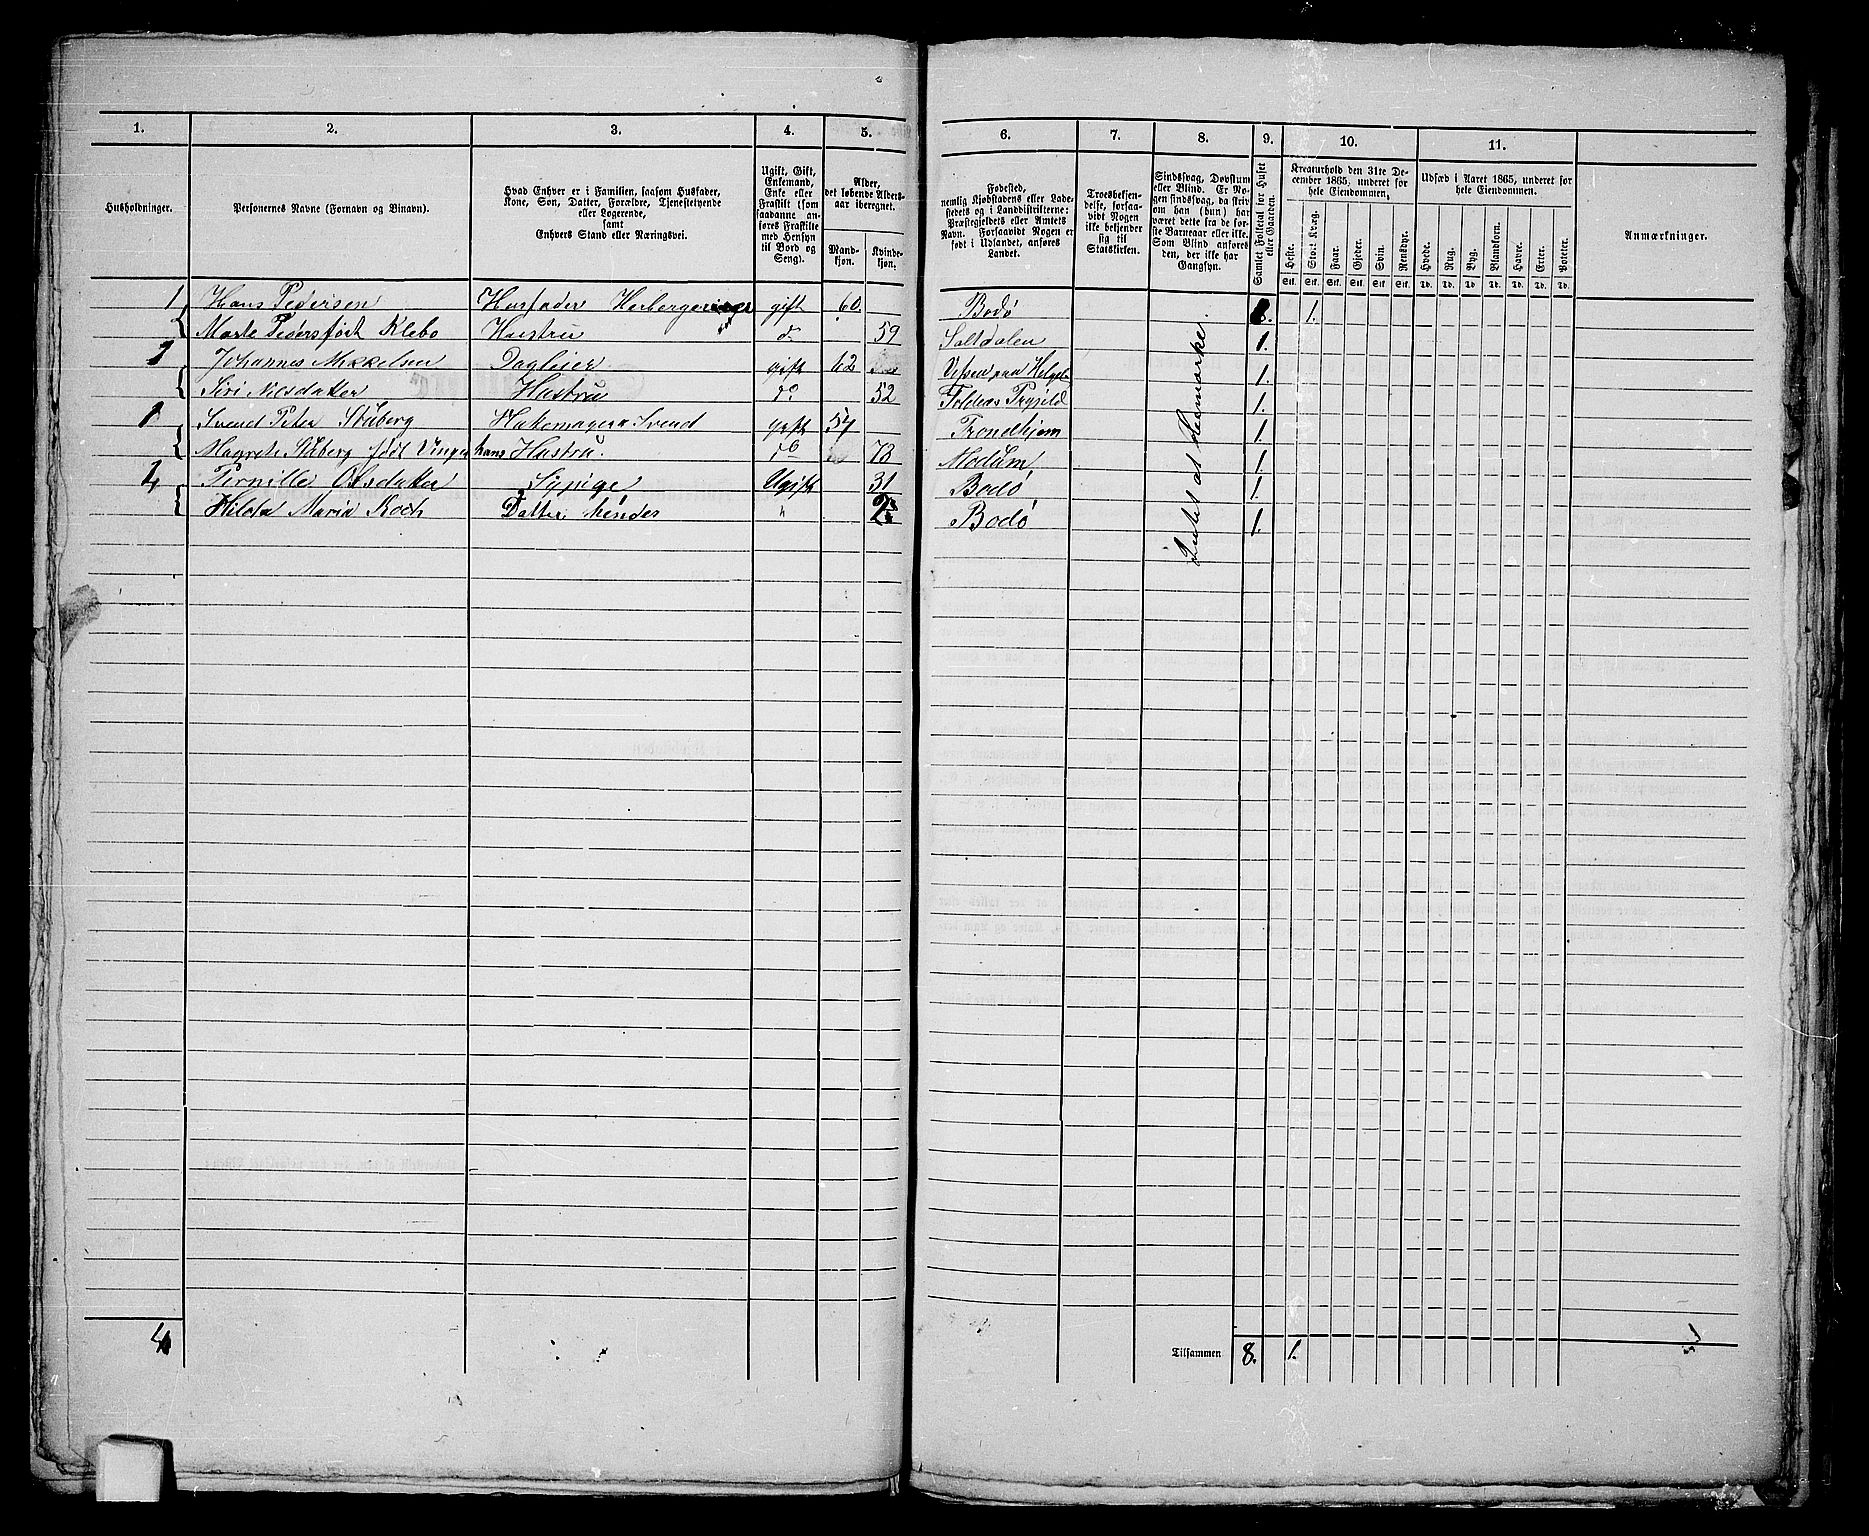 1. 2. 3. 4. 5. 6. 7. 8. 9. 10. 11.
Husholdninger.
Personernes Navne (Fornavn og Binavn).
Hvad Enhver er i Familien, saasom Husfader,
Kone, Søn, Datter, Forældre, Tjenestetyende
eller Logerende,
samt
Enhvers Stand eller Næringsvei.
Ugift, Gift,
Enkemand,
Enke eller
Fraskilt (som
saadanne an-
føres Fraskilte
med Hensyn
til Bord og
Seng).
Alder,
det løbende Alders-
aar iberegnet.
Mand-
kjøn.
Kvinde-
kjøn.
Fødested,
nemlig Kjøbstadens eller Lade-
stedets og i Landdistrikterne:
Præstegjeldets eller Amtets
Navn. Forsaavidt Nogen er
født i Udlandet, anføres
Landet.
Troesbekjen-
delse, forsaa-
vidt Nogen
ikke bekjender
sig til
Statskirken.
Sindssvag, Døvstum
eller Blind. Er No-
gen sindssvag, da skriv
om han (hun) har
været dette fra de før-
ste Barneaar eller ikke.
Som Blind anføres
den, der ikke har
Gangsyn.
Samlet Folketal for Huset
eller Gaarden.
Kreaturhold den 31te De-
cember 1865, underet for
hele Eiendommen.
Heste. Stort Kvæg. Faar. Gjeder. Svin. Rensdyr.
Stk. Stk. Stk. Stk. Stk. Stk.
Udsæd i Aaret 1865, underet for
hele Eiendommen.
Hvede. Rug. Byg. Blandkorn. Havre. Erter. Poteter.
Td. Td. Td. Td. Td. Td. Td.
Anmærkninger.
1 Hans Pedersen Husfader gift 60. Bodø 1.
Marte Pedersføst Klebo Hustru do 59 Saltdalen 1.
1 Johannes Mikkelsen Dagleier gift 62 Vefsen paa 1.
Siri Nilsdatter Hustru do 52 1.
1 Svend Peter Ståberg Svend gift 54 Trondhjem 1.
Magrete Ståberg født hans Hustru. do 78 Modum 1.
4 Pernille Olsdatter Sypige Ugift 31 Bodø 1.
Hilda Maria Koch Datter hendes " 2 Bodø 1.
Intet at bemærke.
4 Tilsammen 8. 1.